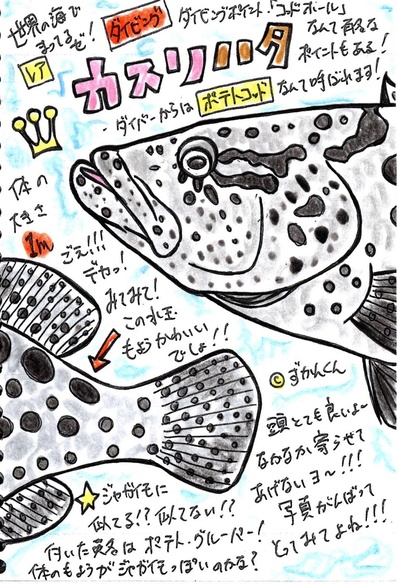 世界の海で
まってるぜ!
ダイビング
ダイビングポイント・「コッドホール」
なんて有名な
ポイントもある!
レア
カスリハタ
・ダイバーからは ポテトコッド なんて呼ばれてます!
体の
大きさ
1m
ごえ!!!
デカッ!
みてみて!
この水玉
もようかわいい
でしょ!!
©ずかんくん
頭とても良いよ〜
なかなか寄らせて
あげないヨ〜!!!
写真がんばって
とってみてよね!!!
ジャガイモに
似てる!?似てない!?
付いた英名は ポテト・グルーパー!
体のもようがジャガイモっぽいのかな?